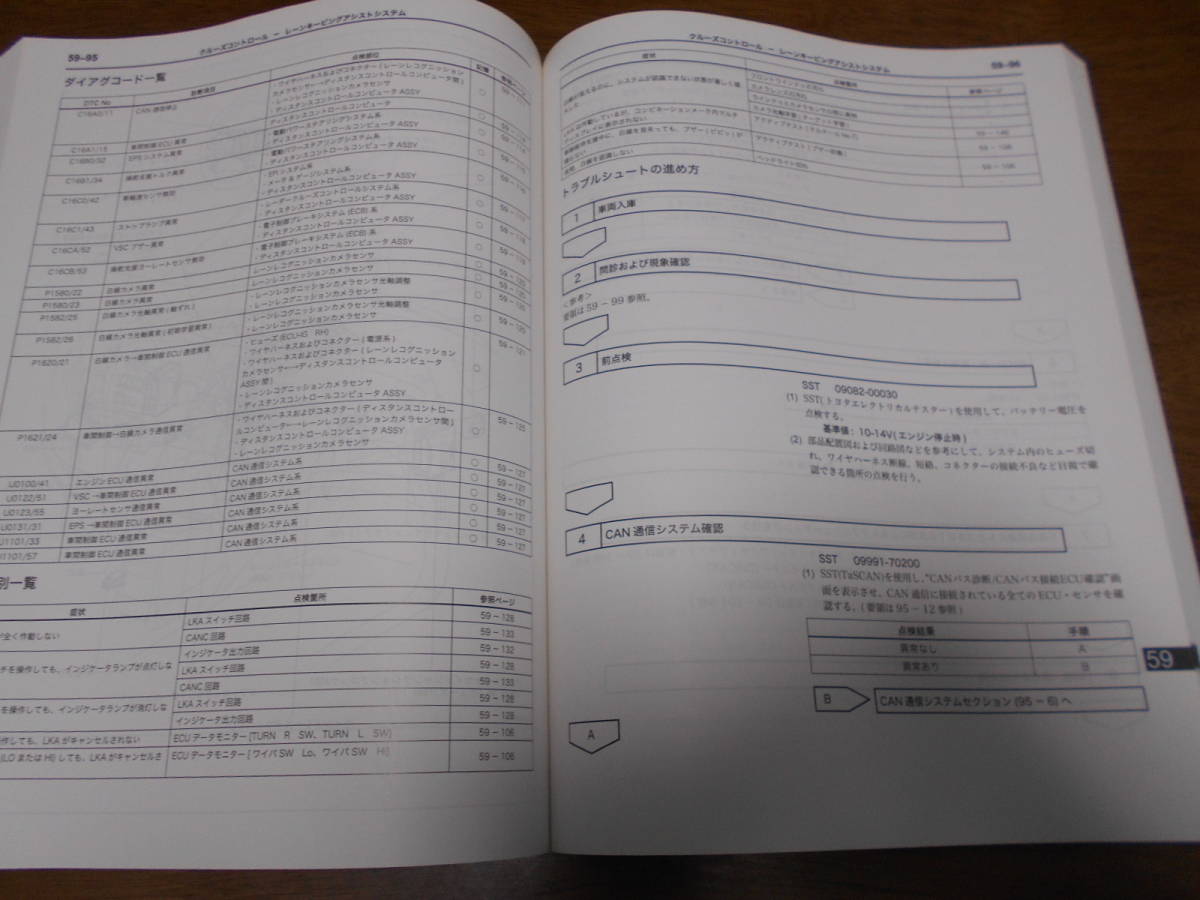 59-95
クルーズコントロール － レーンキーピングアシストシステム
ダイアグコード一覧
DTC No 診断項目 点検部位 記憶 参照ページ
C16A0/11 CAN 通信停止
・ワイヤハーネスおよびコネクター ( レーンレコグニッション
カメラセンサ←→ディスタンスコントロールコンピュータ間 )
・レーンレコグニッションカメラセンサ
・ディスタンスコントロールコンピュータ ASSY
○
C16A1/15 車間制御 ECU 異常 ディスタンスコントロールコンピュータ ○
EPS システム異常
・電動パワーステアリングシステム系
・ディスタンスコントロールコンピュータ ASSY
○
C16B1/34 操舵支援トルク異常
・電動パワーステアリングシステム系
・ディスタンスコントロールコンピュータ ASSY
○
C16C0/42
・メータ & ゲージシステム系
・ディスタンスコントロールコンピュータ ASSY
○
C16C1/43 ストップランプ異常
・レーダークルーズコントロールシステム系
・ディスタンスコントロールコンピュータ ASSY
○
C16CA/52 VSC ブザー異常
・電子制御ブレーキシステム (ECB) 系
・ディスタンスコントロールコンピュータ ASSY
○
C16CB/53
・電子制御ブレーキシステム (ECB) 系
・ディスタンスコントロールコンピュータ ASSY
○
P1580/22 白線カメラ異常 レーンレコグニッションカメラセンサ ○
P1580/23 白線カメラ異常 レーンレコグニッションカメラセンサ ○
P1582/25 白線カメラ光軸異常 ( 軸ずれ )
・レーンレコグニッションカメラセンサ光軸調整
・レーンレコグニッションカメラセンサ
○
P1582/26 白線カメラ光軸異常 ( 初期学習異常 )
・レーンレコグニッションカメラセンサ光軸調整
・レーンレコグニッションカメラセンサ
○
P1620/21 白線カメラ→車間制御 ECU 通信異常
・ヒューズ (ECU-IG RH)
・ワイヤハーネスおよびコネクター ( 電源系 )
・ワイヤハーネスおよびコネクター ( レーンレコグニッション
カメラセンサ←→ディスタンスコントロールコンピュータ
ASSY 間 )
・レーンレコグニッションカメラセンサ
・ディスタンスコントロールコンピュータ ASSY
○ 59－121
P1621/24 車間制御→白線カメラ通信異常
・ワイヤハーネスおよびコネクター ( ディスタンスコントロー
ルコンピュータ←→レーンレコグニッションカメラセンサ間 )
・ディスタンスコントロールコンピュータ ASSY
・レーンレコグニッションカメラセンサ
○ 59－125
U0100/41 エンジン ECU 通信異常 CAN 通信システム系 ○ 59－127
U0122/51 VSC →車間制御 ECU 通信異常 CAN 通信システム系 ○ 59－127
U0123/55 ヨーレートセンサ通信異常 CAN 通信システム系 ○ 59－127
U0131/31 EPS →車間制御 ECU 通信異常 CAN 通信システム系 ○ 59－127
U1101/33 車間制御 ECU 通信異常 CAN 通信システム系 ○ 59－127
U1101/57 車間制御 ECU 通信異常 CAN 通信システム系 ○ 59－127
別一覧
症状 点検箇所 参照ページ
が全く作動しない LKA スイッチ回路 59－128
CANC 回路 59－133
インジケータ出力回路 59－132
チを操作しても、インジケータランプが点灯しな LKA スイッチ回路 59－128
CANC 回路 59－133
を操作しても、インジケータランプが消灯しな LKA スイッチ回路 59－128
インジケータ出力回路 59－128
作しても、LKA がキャンセルされない ECU データモニター [TURN R SW、TURN L SW] 59－106
(LO または HI) しても、LKA がキャンセルさ ECU データモニター [ ワイパ SW Lo、ワイパ SW Hi] 59－106
クルーズコントロール － レーンキーピングアシストシステム
59-96
症状 点検箇所 参照ページ
ヘッドライト
トラブルシュートの進め方
1 車両入庫
2 問診および現象確認
＜参考＞
要領は 59 － 99 参照。
3 前点検
SST 09082-00030
(1) SST( トヨタエレクトリカルテスター ) を使用して、バッテリー電圧を
点検する。
基準値 : 10-14V( エンジン停止時 )
(2) 部品配置図および回路図などを参考にして、システム内のヒューズ切
れ、ワイヤハーネス断線、短絡、コネクターの接続不良など目視で確
認できる箇所の点検を行う。
4 CAN 通信システム確認
SST 09991-70200
(1) SST(TaSCAN)を使用し、“CANバス診断/CANバス接続ECU確認”画
面を表示させ、CAN 通信に接続されている全ての ECU・センサを確
認する。( 要領は 95 － 12 参照 )
点検結果 手順
異常なし A
異常あり B
B CAN 通信システムセクション (95 － 6) へ
A
59